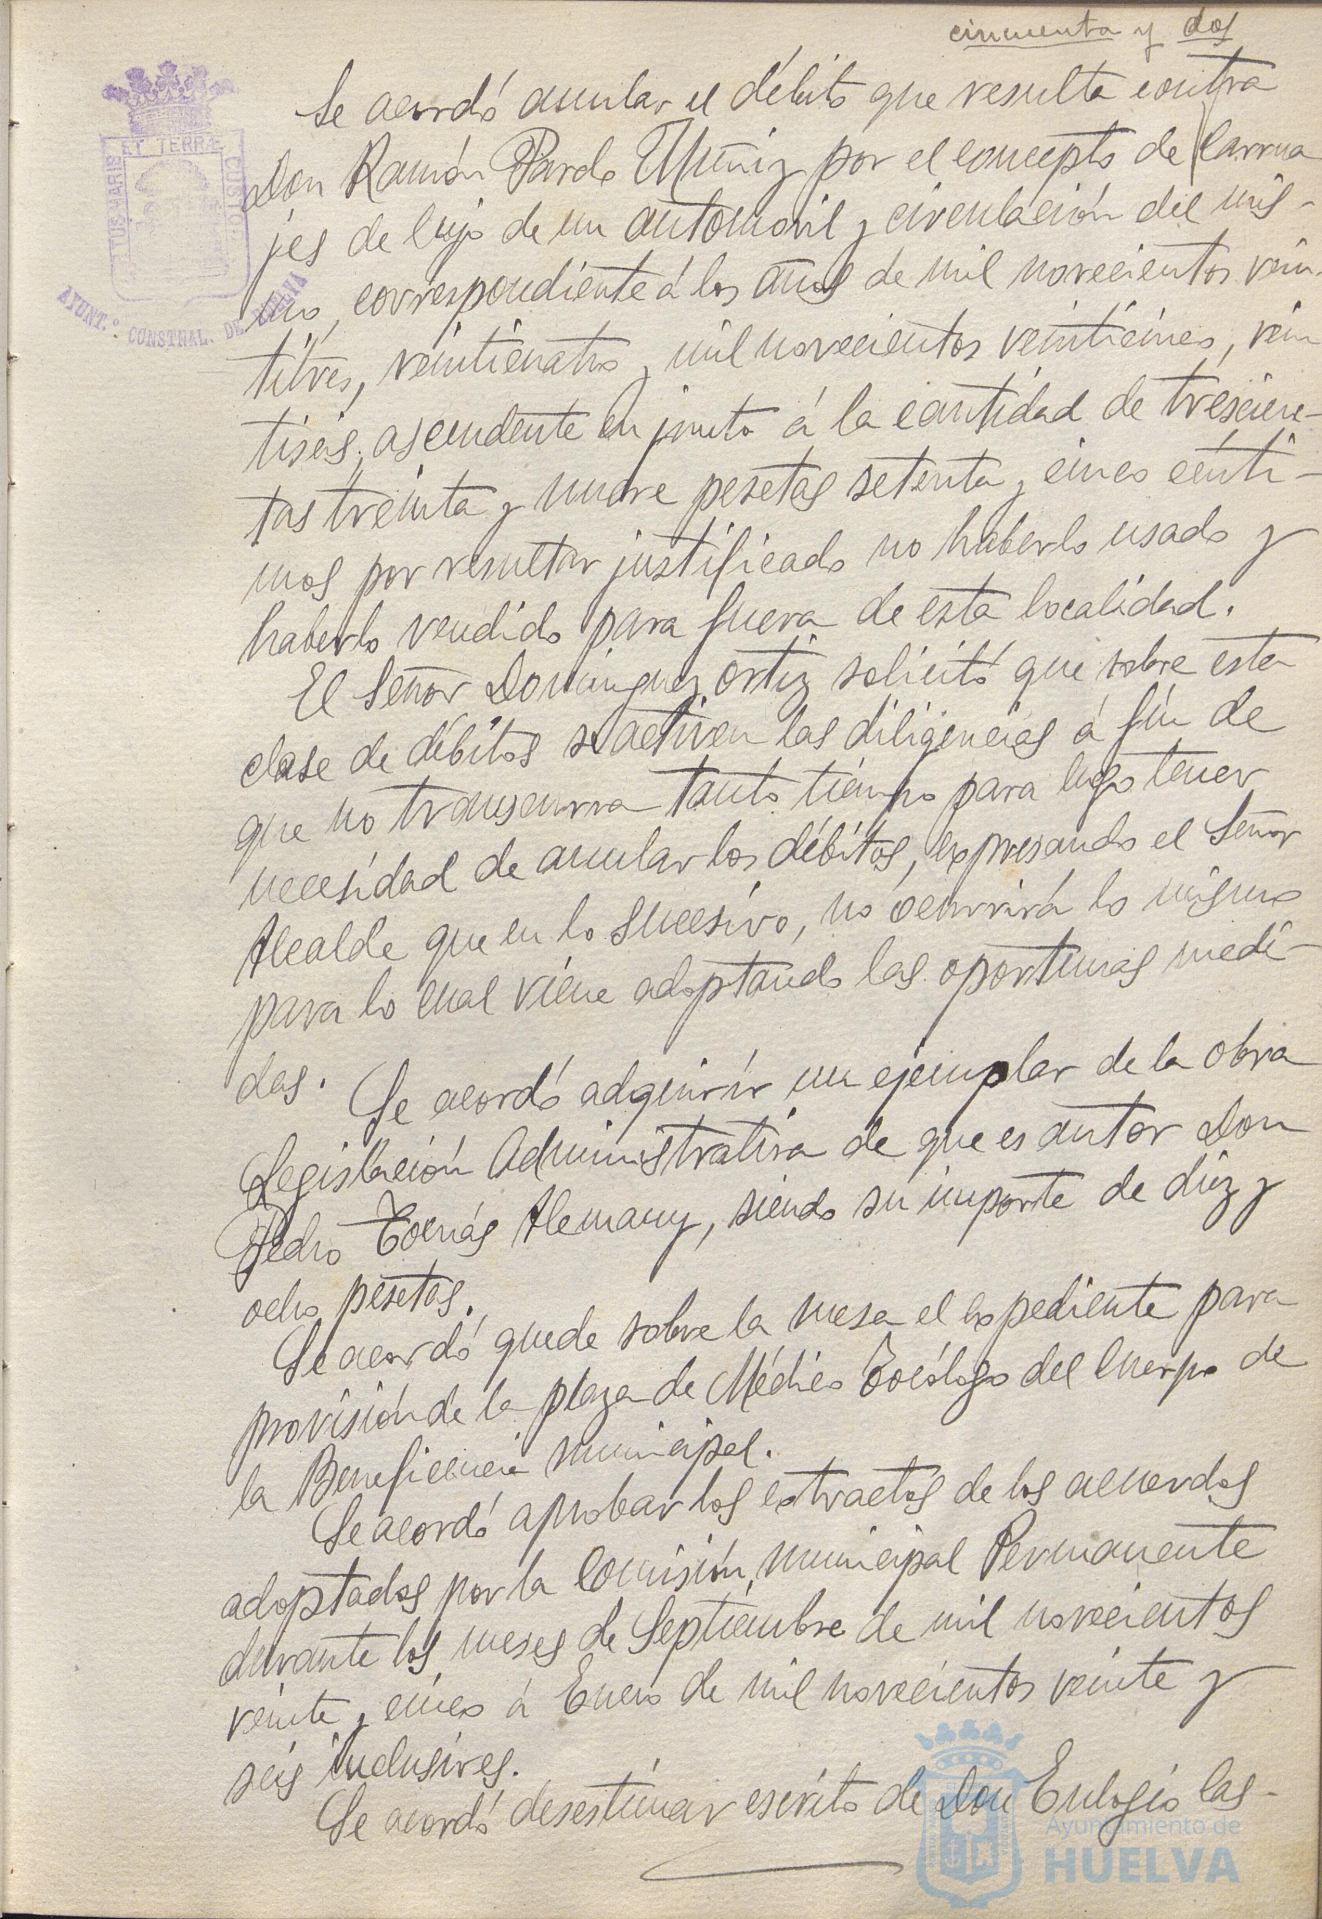 cincuenta y dos
Se acordó anular el débito que resulta contra
Don Ramón Pardo Muñiz por el concepto de Carrua
jes de lujo de un automovil y circulación del mis-
mo, correspondiente á los años de mil novecientos vein-
titres, veinticuatro y mil novecientos veinticinco, vein
tiseis, ascendente en junto á la cantidad de trescien-
tas treinta y nueve pesetas setenta y cinco cénti-
mos por resultar justificado no haberlo usado y
haberlo vendido para fuera de esta localidad.
El Señor Dominguez Ortiz solicitó que sobre esta
clase de débitos se activen las diligencias á fin de
que no transcurra tanto tiempo para luego tener
necesidad de anular los débitos, expresando el Señor
Alcalde que en lo sucesivo, no ocurrirá lo mismo
para lo cual viene adoptando las oportunas medi-
das. Se acordó adquirir un ejemplar de la obra
Legislación Administrativa de que es autor Don
Pedro Tornás Alemany, siendo su importe de diez y
ocho pesetas.
Se acordó quede sobre la mesa el expediente para
provisión de la plaza de Médico Tocólogo del Cuerpo de
la Beneficencia municipal.
Se acordó aprobar los extractos de los acuerdos
adoptados por la Comisión municipal Permanente
durante los meses de Septiembre de mil novecientos
veinte y cinco á Enero de mil novecientos veinte y
seis inclusives.
Se acordó desestimar escrito de Don Eulogio Cas-
ET TERRÆ
TUS MARIS
CUSTO
AYUNT.º CONSTNAL. DE HUELVA
Ayuntamiento de
HUELVA